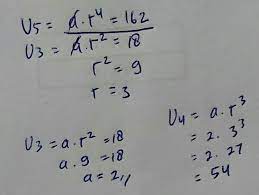 U5 = a.r⁴ = 162
U3 = a.r² = 18
r² = 9
r = 3
U3 = a.r² = 18
a.9 = 18
a = 2,,
U4 = a.r³
= 2.3³
= 2.27
= 54